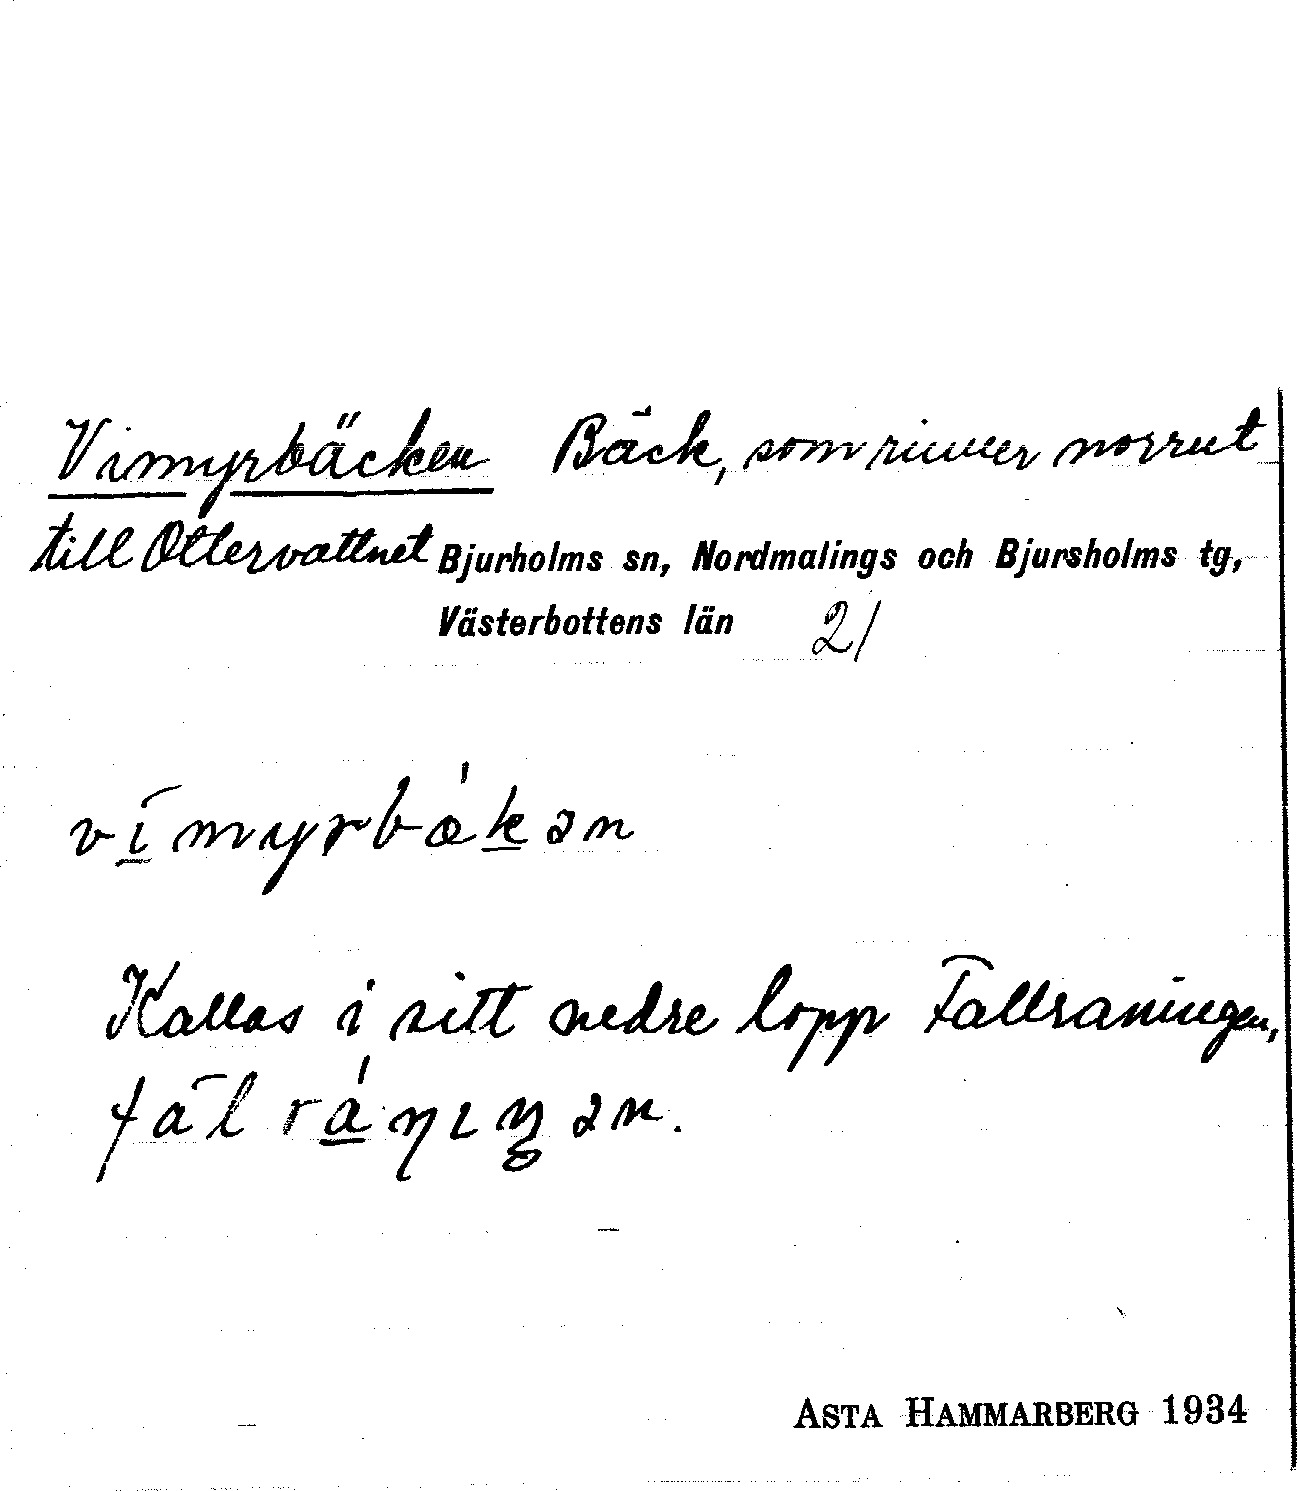 Vimyrbäcken Bäck, som rinner norrut
till Ottervattnet Bjurholms sn, Nordmalings och Bjursholms tg,
Västerbottens län 21
vi̱myrbæḵən
Kallas i sitt nedre lopp Fallraningen,
fal ra̱ŋɩŋən.
ASTA HAMMARBERG 1934